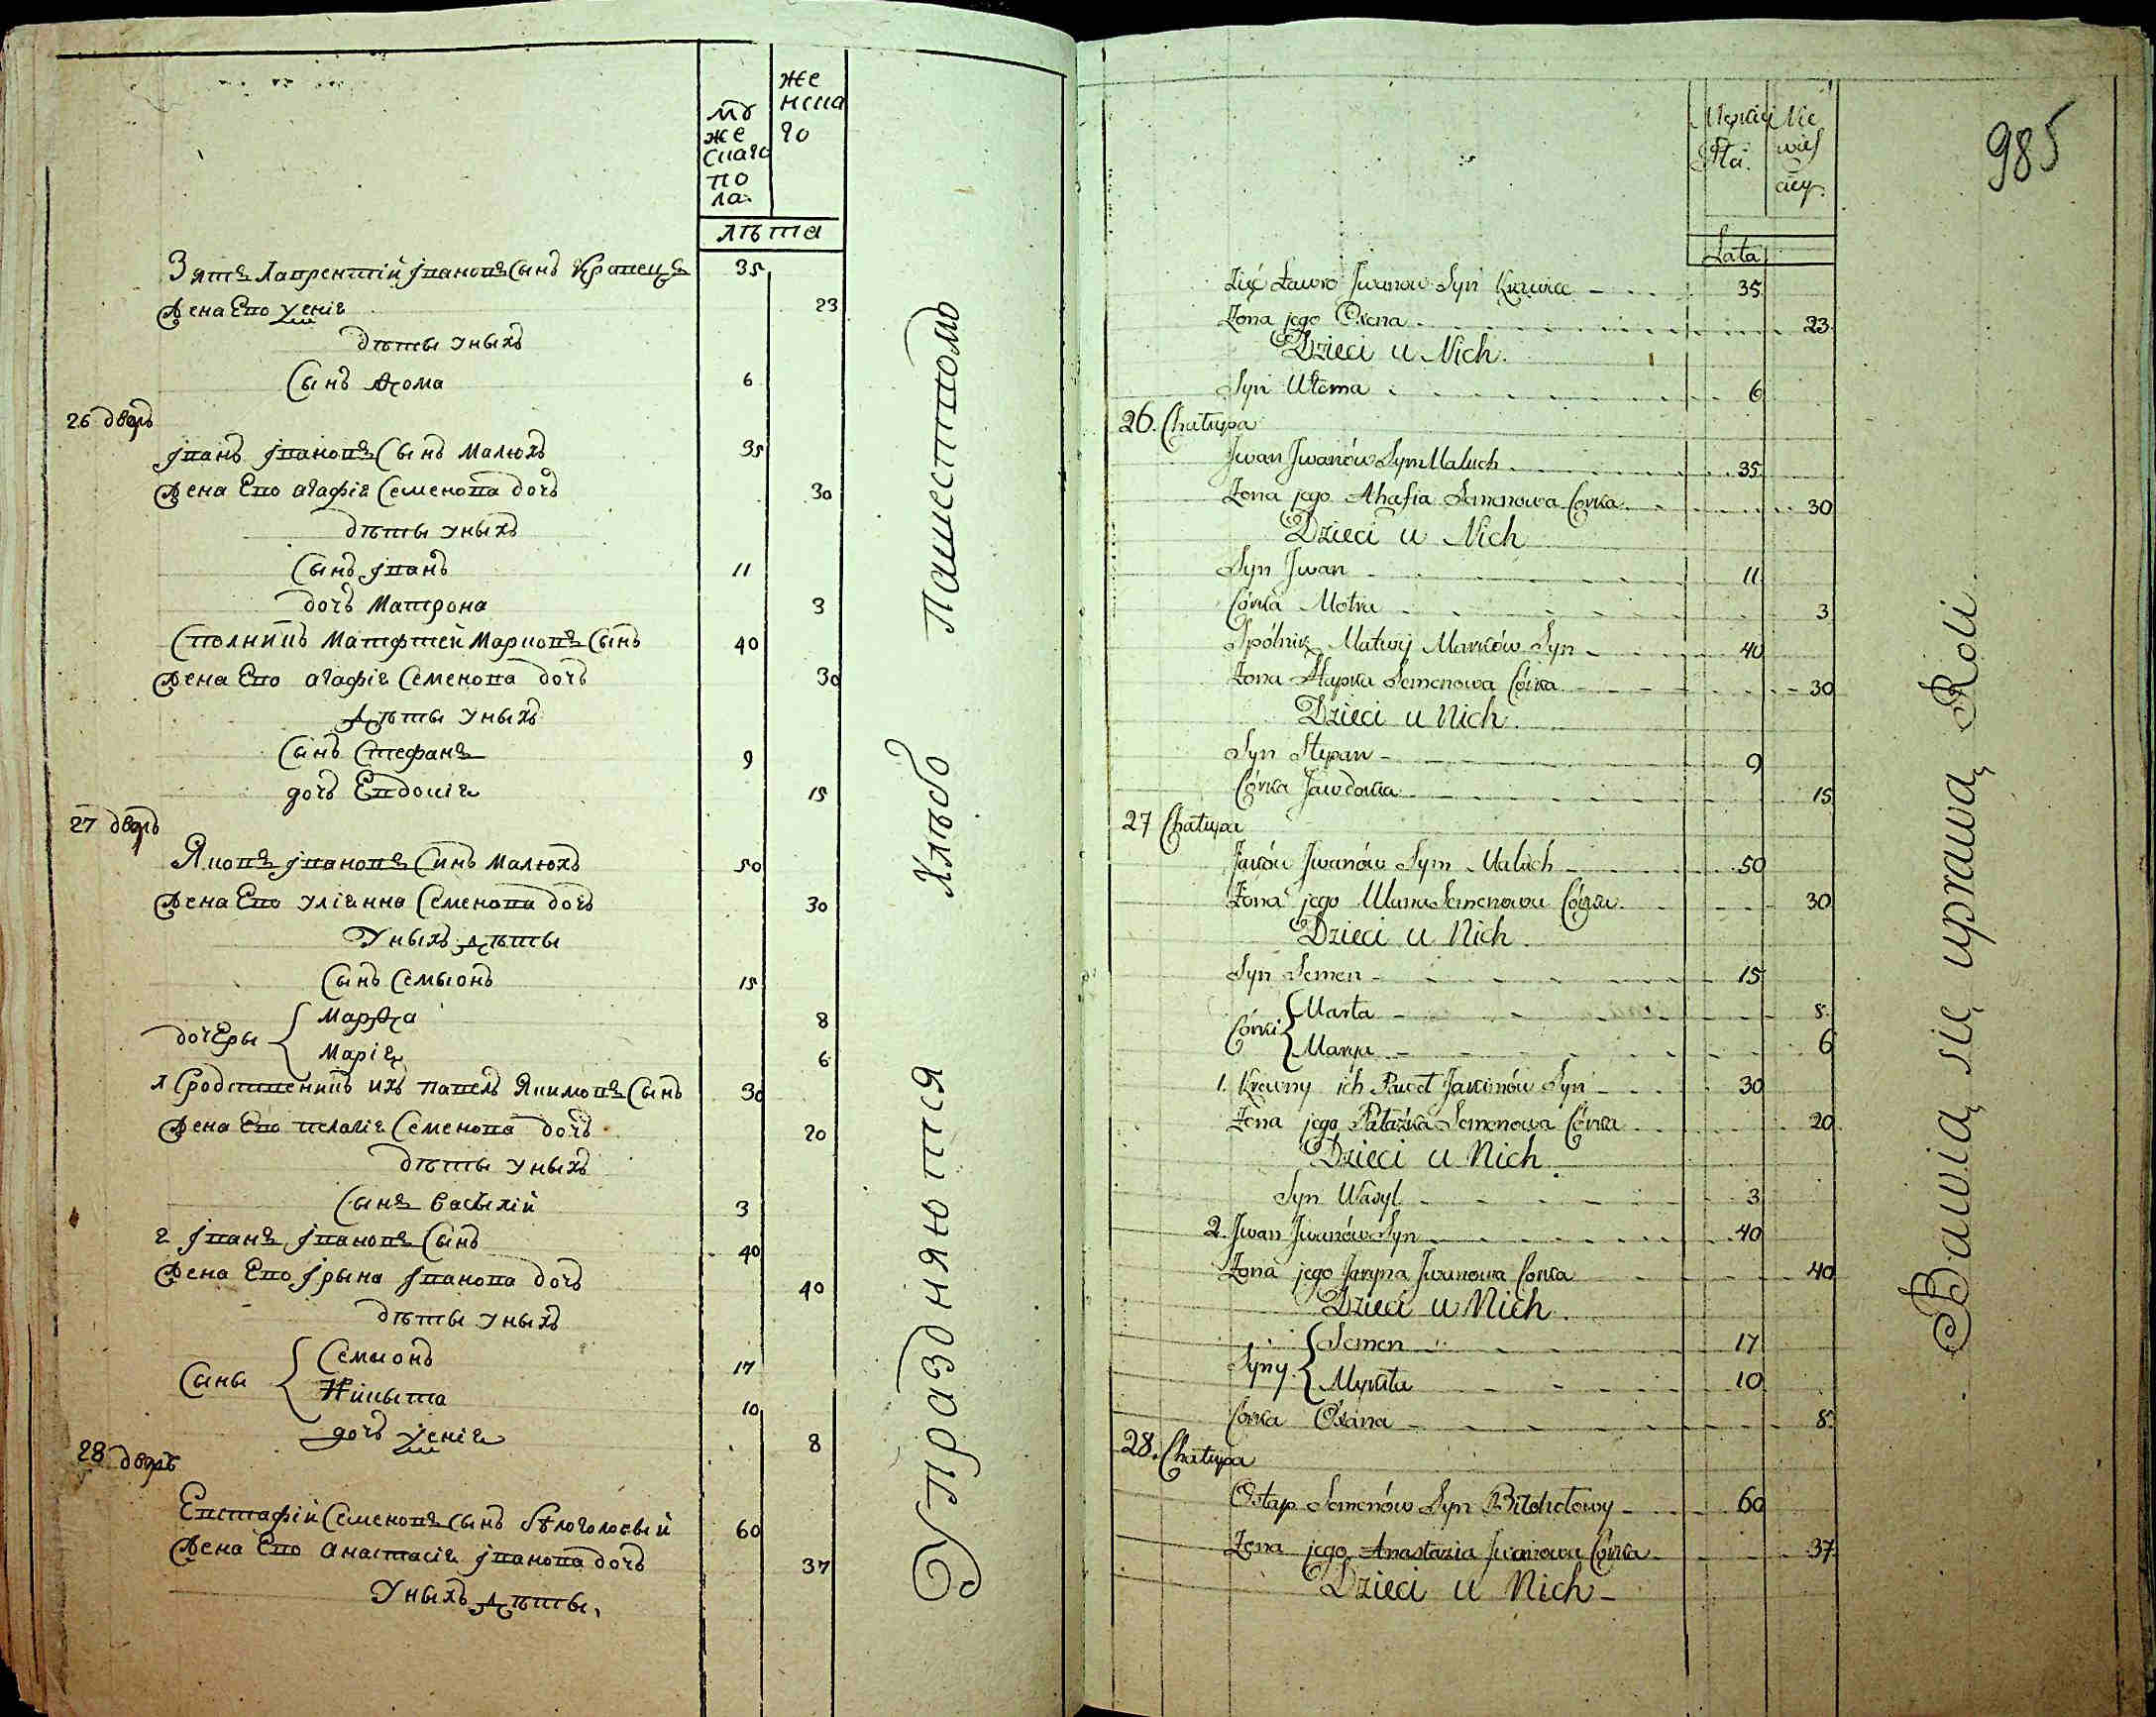 же
нска
го
му
же
скаго
по
ла.
лѣта
Зять Лаврентій Івановъ Сынъ Кравецъ 35
Жена Ево Ксенія 23
дѣты уныхъ
Сынъ Ѳома 6
26 дворъ
Іванъ Івановъ Сынъ Малюхъ 35
Жена Ево агафія Семенова дочь 30
дѣты уныхъ
Сынъ Іванъ 11
дочь Матрона 3
Сполникъ Матфтей Марковъ Сынъ 40
Жена Ево агафія Семенова дочь 30
Дѣты уныхъ
Сынъ Стефанъ 9
дочь Евдокія 15
27 дворъ
Яковъ Івановъ Синъ Малюхъ 50
Жена Ево уліянна Семенова дочь 30
Уныхъ дѣты
Сынъ Семыонъ 15
дочеры
Марѳа 8
Марія 6
1 Сродственикъ ихъ Павелъ Якимовъ Сынъ 30
Жена Ево пелагія Семенова дочь 20
дѣты уныхъ
Сынъ Васылій 3
2 Іванъ Івановъ Сынъ 40
Жена Ево Ірына Іванова дочь 40
дѣты уныхъ
Сыны
Семыонъ 17
Никыта 10
дочь Ксенія 8
28 дворъ
Евстафій Семеновъ Сынъ бѣлоголовый 60
Жена Ево Анастасія Іванова дочь 37
Уныхъ дѣты,
Упраздняются Хлѣбо Пашеством
985
Męzkiej Płci.
Nie
wieś
ciey.
Lata
Zięć Ławro Jwanow Syn Krawiec 35
Żona jego Oxena 23
Dzieci u Nich.
Syn Chtoma 6
26. Chałupa
Jwan Jwanów Syn Maluch 35
Żona jego Ahafia Semenowa Córka 30
Dzieci u Nich
Syn Jwan 11
Córka Motra 3
Spólnik Matwij Marków Syn 40
Żona Hapka Semenowa Córka 30
Dzieci u Nich.
Syn Stepan 9
Córka Jawdocha 15
27 Chałupa
Jaków Jwanów Syn Maluch 50
Żona jego Ulana Semenowa Córka. 30
Dzieci u Nich.
Syn Semen 15
Córki
Marta 8.
Marya 6
1. Krewny ich Paweł Jakimów Syn 30
Żona jego Pałażka Semenowa Córka 20
Dzieci u Nich.
Syn Wasyl 3
2. Jwan Jwanów Syn 40
Żona jego Jaryna Jwanowa Corka 40
Dzieci u Nich.
Syny.
Semen 17
Mykita 10
Corka Oxana 8.
28. Chałupa
Ostap Semenów Syn Biłohołowy 60
Żona jego Anastazia Jwanowa Córka 37
Dzieci u Nich
Bawią się uprawą Roli.